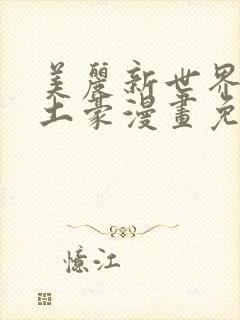 美麗新世界
土豪漫畫免
憶江